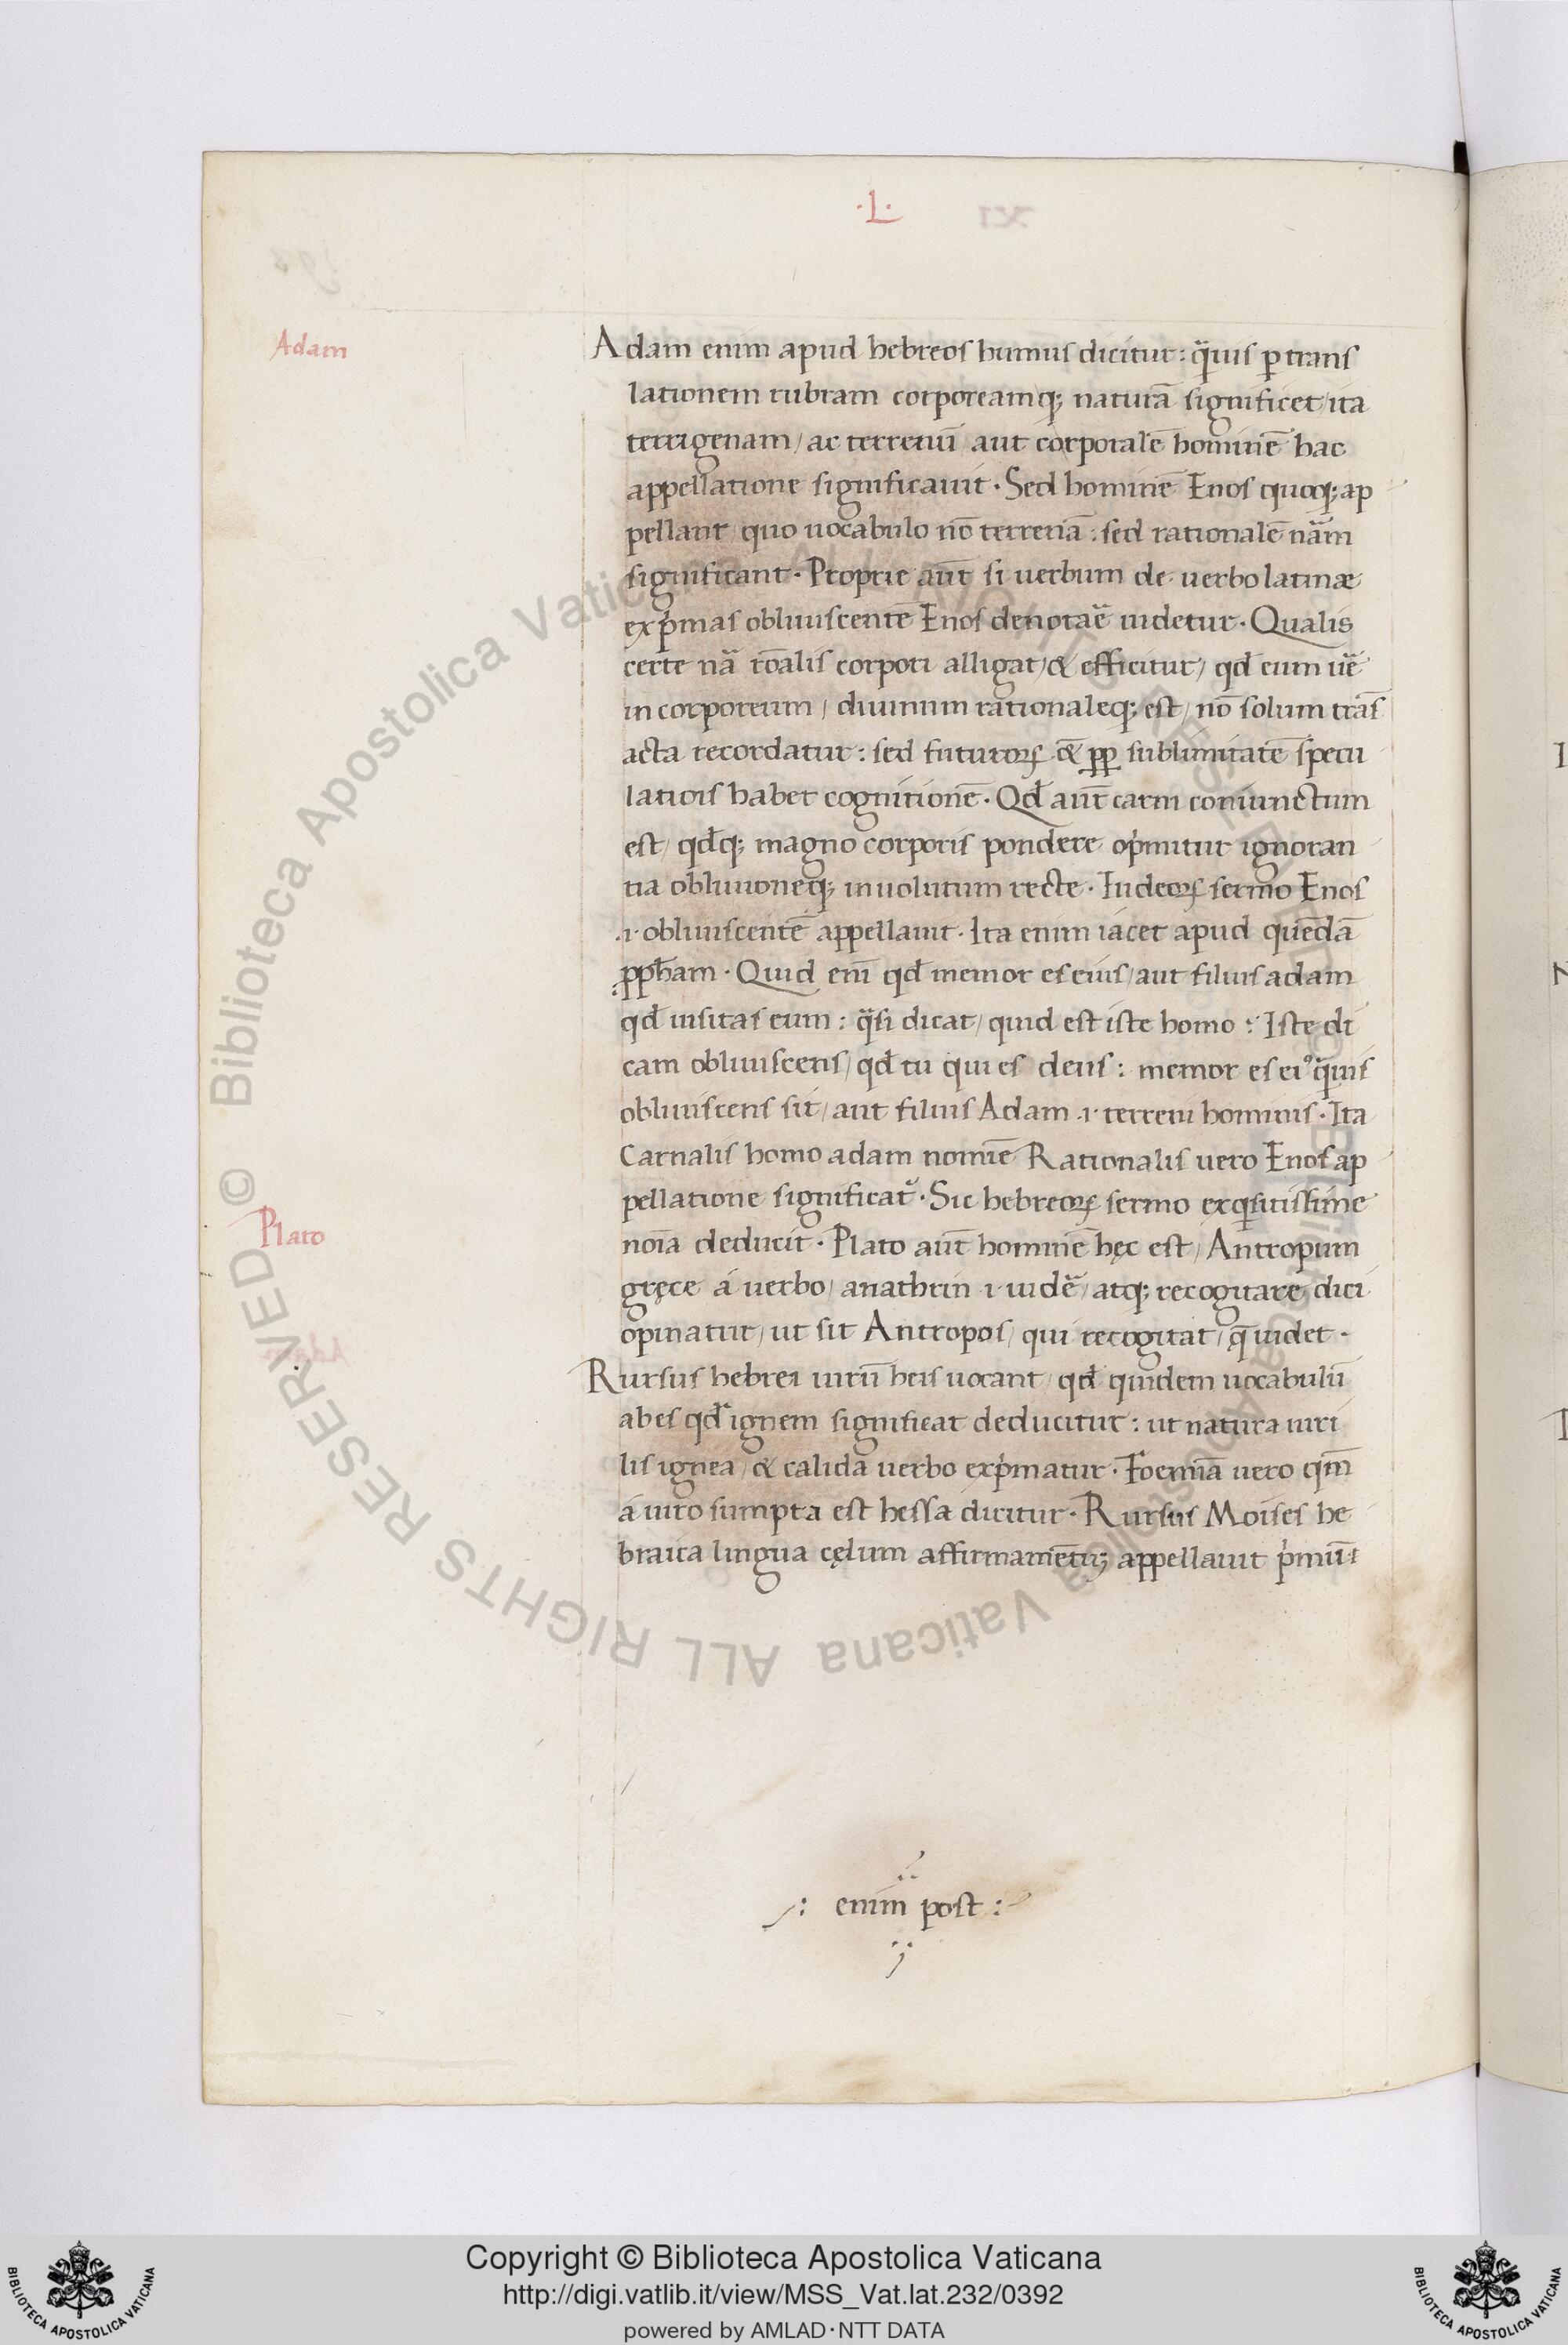 ·L·
Adam
Adam enim apud hebreos humus dicitur: q̃uis ꝑ trans
lationem rubram corpoream⁊q; naturã significet/ita
terrigenam/ ac terrenũ aut corporalẽ hominẽ hac
appellatione significauit · Sed hominẽ Enos quoq; ap
pellant quo uocabulo nõ terrenã: sed rationalẽ nãm
significant · Proprie aũt si uerbum de uerbo latinæ
exp̃mas obliuiscentẽ Enos denotaẽ uidetur · Qualis
certe nã rõalis corpori alligat/& efficitur/ qđ eum uẽ
in corporeum / diuinum rationaleq; est/ nõ solum trãs
acta recordatur: sed futuroꝝ & ꝓꝓ sublimitatẽ specu
latiõis habet cognitionẽ · Qđ aũt carni coniunctum
est/ qđq; magno corporis pondere op̃mitur ignoran
tia obliuioneq; inuolutum recte · Iudeoꝝ sermo Enos
.i· obliuiscentẽ appellauit · Ita enim iacet apud quẽdã
ꝓpħam · Quid enĩ qđ memor es eius/aut filius adam
qđ uisitas eum: q̃si dicat/ quid est iste homo: Iste di
cam obliuiscens/ qđ tu qui es deus: memor es eiꝰ q̃uis
obliuiscens sit/ aut filius Adam .i· terreni hominis · Ita
Carnalis homo adam nomĩe Rationalis uero Enos ap
pellatione significat᷑ · Sic hebreoꝝ sermo exq̃sitissime
Plato
noĩa deducit · Plato aũt hominẽ hęc est/ Antropum
gręce á uerbo/ anathrin .i· uidẽ/ atq; recogitare dici
opinatur/ ut sit Antropos/ qui recogitat/ q̃ uidet ·
Rursus hebrei uirũ heis uocant qđ quidem uocabulũ
ab es qđ ignem significat deducitur: ut natura uiri
lis ignea/& calida uerbo exp̃matur · Foemĩa uero qm̃
á uiro sumpta est hessa dicitur · Rursus Moises he
braica lingua cęlum affirmamẽtũ; appellauit p̃mũ
enim post :
Copyright © Biblioteca Apostolica Vaticana
http://digi.vatlib.it/view/MSS_Vat.lat.232/0392
powered by AMLAD·NTT DATA
BIBLIOTECA APOSTOLICA VATICANA
BIBLIOTECA APOSTOLICA VATICANA